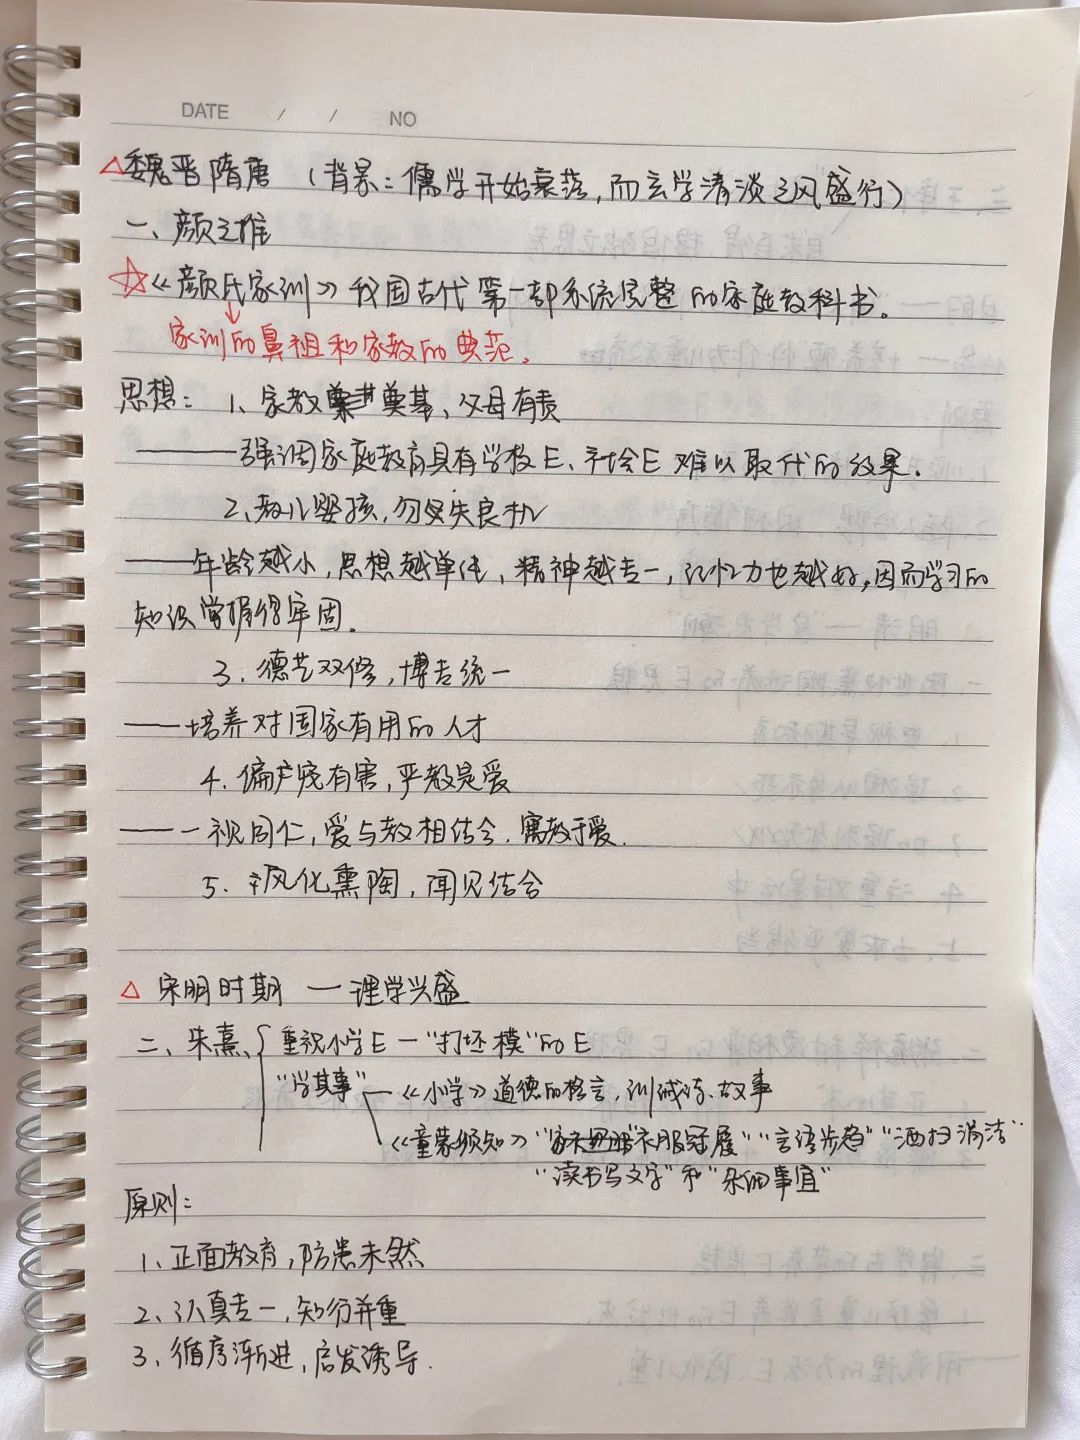 DATE / / NO
△魏晋隋唐 (背景:儒学开始衰落,而玄学清淡之风盛行)
一、颜之推
☆《颜氏家训》我国古代第一部系统完整的家庭教科书。
家训的鼻祖和家教的典范。
思想: 1、家教奠基、父母有责
——强调家庭教育具有学校E、社会E难以取代的效果.
2、教儿婴孩,勿失良机
——年龄越小,思想越单纯,精神越专一,记忆力也越好,因而学习的
知识掌握得牢固.
3. 德艺双修,博专统一
——培养对国家有用的人才
4. 偏宠有害,严教是爱
——一视同仁,爱与教相结合.寓教于爱.
5. 风化熏陶,闻见结合
△ 宋明时期 — 理学兴盛
二、朱熹、 重视小学E — "打坯模"的E
"学其事" 《小学》道德的格言,训诫诗.故事
《童蒙须知》"衣服冠履""言语步趋""洒扫涓洁"
"读书写文字"和"杂细事宜"
原则:
1、正面教育,防患未然
2、认真专一,知行并重
3、循序渐进,启发诱导.